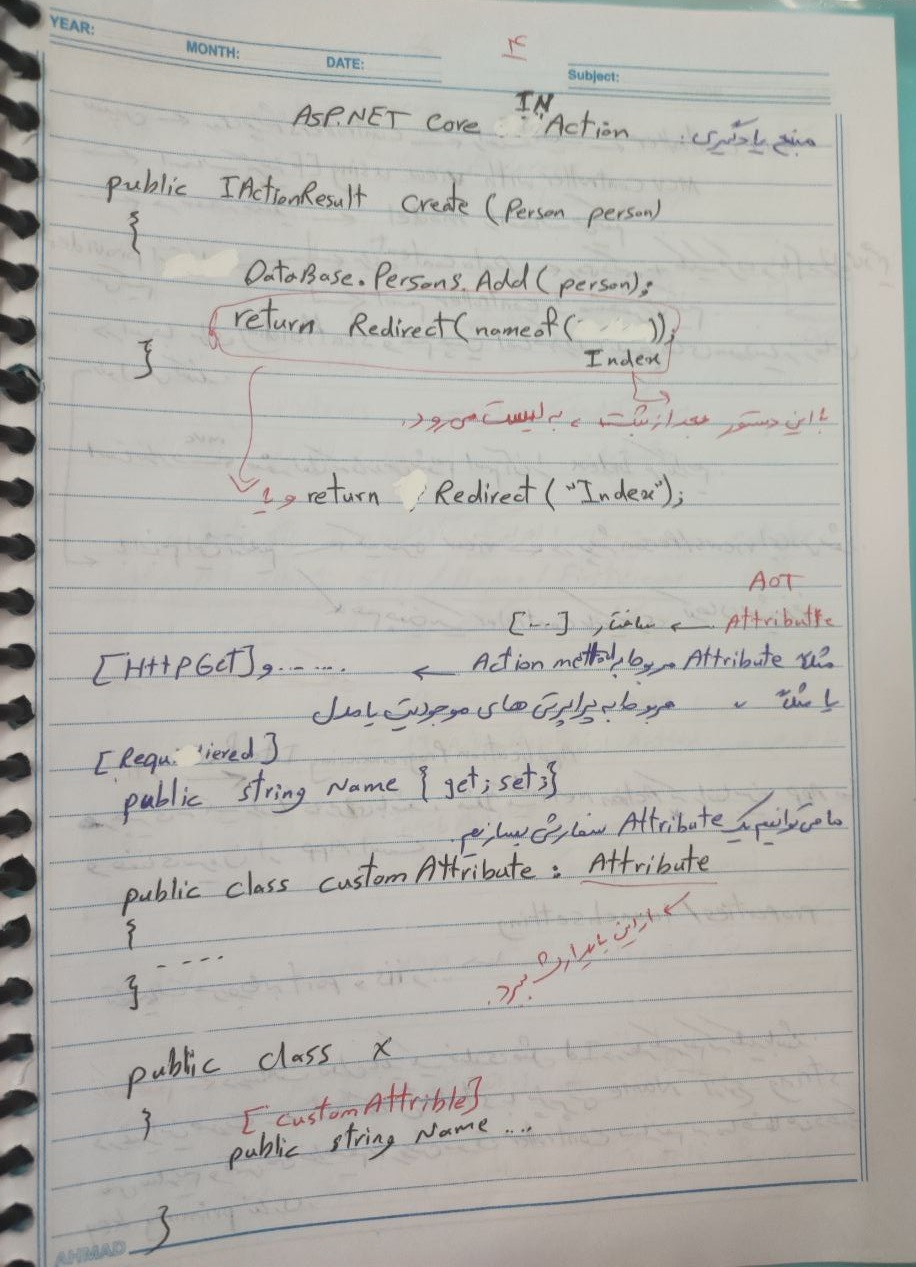 YEAR:
MONTH:
DATE:
۴
Subject:
منبع یادگیری: ASP.NET Core IN Action
public IActionResult Create (Person person)
{
DataBase.Persons.Add(person);
return Redirect(nameof(Index));
}
با این دستور بعد از ثبت، به لیست می‌رود.
و یا return Redirect("Index");
AOT
Attribute ← ساختار [...]
مثلا Attribute مربوط به Action method ← [HttpGet] و.......
یا مثلا " مربوط به پراپرتی های موجودیت یا مدل
[Requiered]
public string Name { get; set;}
ما می توانیم یک Attribute سفارشی بسازیم.
public class customAttribute : Attribute
{
از این باید ارث ببرد.
- - - -
}
public class X
}
[customAttrible]
public string Name ...
}
AHMAD